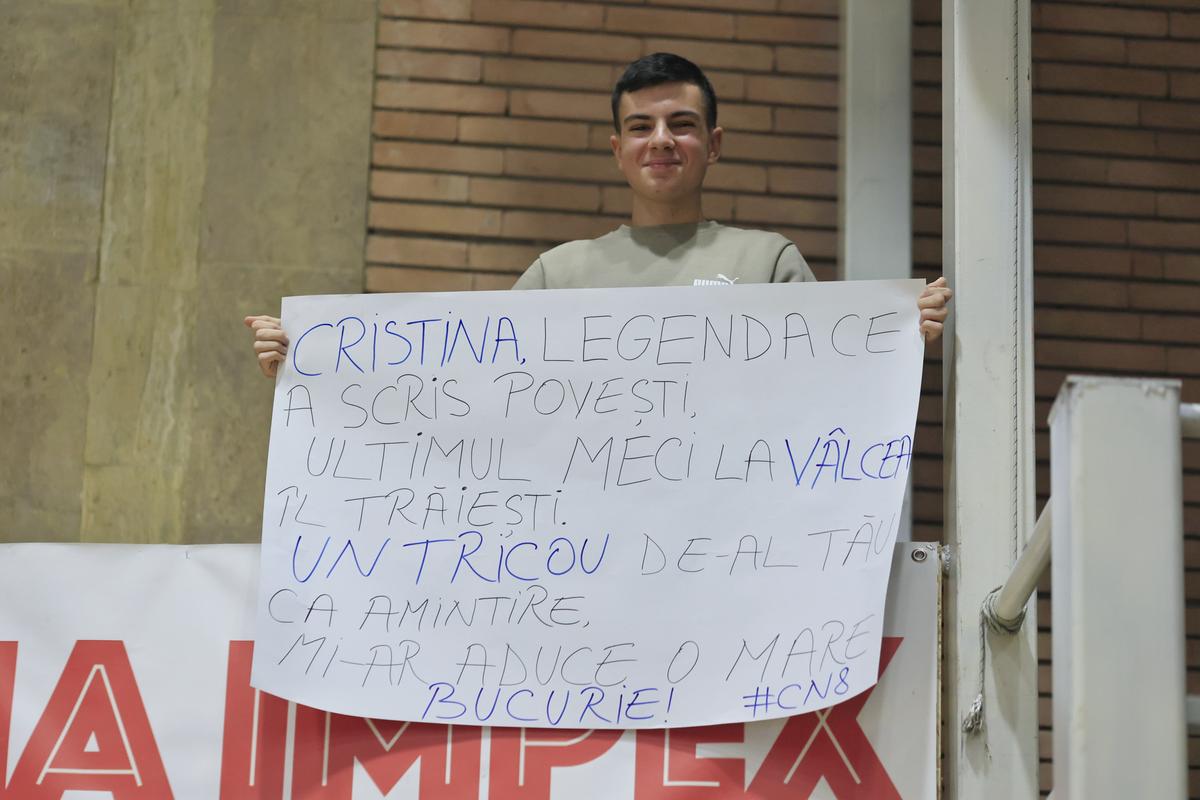 PUMA
CRISTINA, LEGENDA CE
A SCRIS POVEȘTI,
ULTIMUL MECI LA VÂLCEA
ÎL TRĂIEȘTI.
UN TRICOU DE-AL TĂU
CA AMINTIRE,
MI-AR ADUCE O MARE
BUCURIE! #CN8
A IMPEX